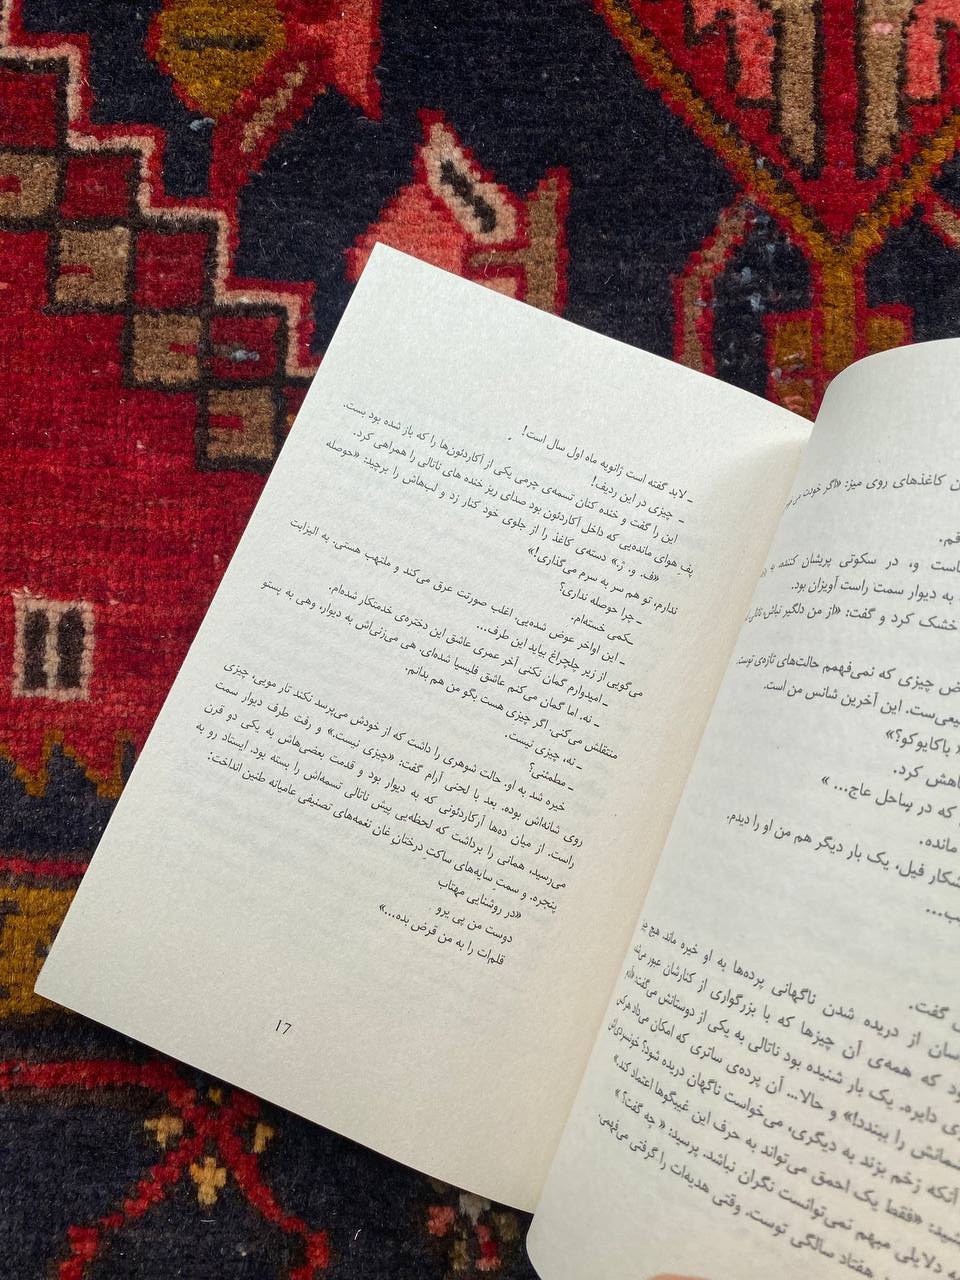 کاغذهای روی میز: «اگر خودت می
است و، در سکوتی پریشان کننده، به
به دیوار سمت راست آویزان بود.
خشک کرد و گفت: «از من دلگیر نباش، ناتالی
چیزی که نمی‌فهمم حالت‌های تازه‌ی توست.
این آخرین شانس من است.
یاکایوکو؟»
کرد.
که در ساحل عاج... »
مانده.
شکار فیل، یک بار دیگر هم من او را دیدم.
گفت.
از دریده شدن ناگهانی پرده‌ها به او خیره ماند. هیچ چیز
که همه‌ی آن چیزها که با بزرگواری از کنارشان عبور می‌شد
دایره. یک بار شنیده بود ناتالی به یکی از دوستانش می‌گفت:
را ببندد!» و حالا... آن پرده‌ی ساتری که امکان می‌داد هرکس
آنکه زخم بزند به دیگری، می‌خواست ناگهان دریده شود؟ خونسردی‌اش
«فقط یک احمق می‌تواند به حرف این غیبگوها اعتماد کند.»
دلایلی مبهم نمی‌توانست نگران نباشد. پرسید: « چه گفت؟ »
هفتاد سالگی توست. وقتی هدیه‌ات را گرفتی می‌فهمی.
ـ لابد گفته است ژانویه ماه اول سال است!
ـ چیزی در این ردیف!
این را گفت و خنده کنان تسمه‌ی چرمی یکی از آکاردئون‌ها را که باز شده بود بست.
پف هوای مانده‌یی که داخل آکاردئون بود صدای ریز خنده های ناتالی را همراهی کرد.
«ف. و. ژ.» دسته‌ی کاغذ را از جلوی خود کنار زد و لب‌هاش را برچید: «حوصله
ندارم، تو هم سر به سرم می‌گذاری!»
ـ چرا حوصله نداری؟
ـ کمی خسته‌ام.
ـ این اواخر عوض شده‌یی. اغلب صورتت عرق می‌کند و ملتهب هستی. به الیزابت
می‌گویی از زیر چلچراغ بیاید این طرف...
ـ امیدوارم گمان نکنی آخر عمری عاشق این دختره‌ی خدمتکار شده‌ام.
ـ نه. اما گمان می‌کنم عاشق فلیسیا شده‌ای. هی می‌زنی‌اش به دیوار، وهی به پستو
منتقلش می‌کنی. اگر چیزی هست بگو من هم بدانم.
ـ نه، چیزی نیست.
ـ مطمئنی؟
خیره شد به او. حالت شوهری را داشت که از خودش می‌پرسد نکند تار مویی، چیزی
روی شانه‌اش بوده. بعد با لحنی آرام گفت: «چیزی نیست.» و رفت طرف دیوار سمت
راست. از میان ده‌ها آرکاردئونی که به دیوار بود و قدمت بعضی‌هاش به یکی دو قرن
می‌رسید، همانی را برداشت که لحظه‌یی پیش ناتالی تسمه‌اش را بسته بود. ایستاد رو به
پنجره. و سمتِ سایه‌های ساکتِ درختان‌ِ غان نغمه‌های تصنیفی عامیانه طنین انداخت:
«در روشنایی مهتاب
دوست من پی یرو
قلم‌ات را به من قرض بده...»
17